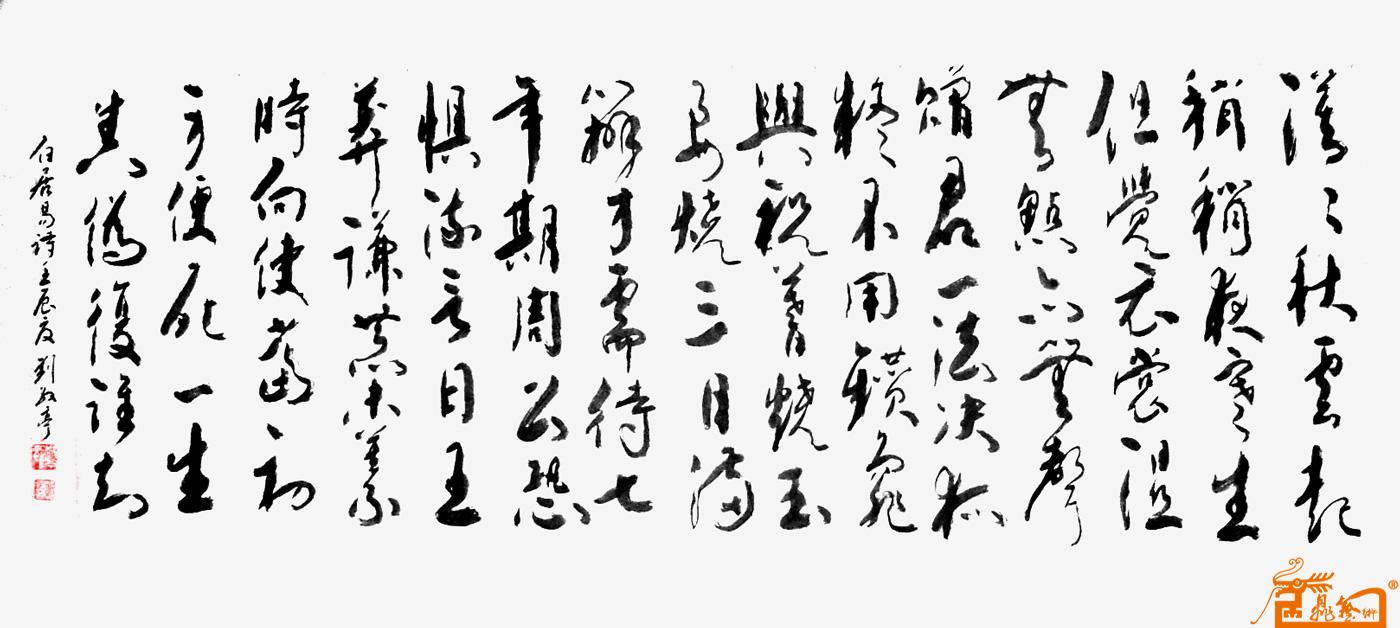 漠々秋雲起
稍稍夜寒生
但覺衣裳湿
無點亦無聲
贈君一法決狐
疑不用鑽龜
與祝蓍燒玉
要燒三日滿
辨才需待七
年期周公恐
懼流言日王
莽謙恭未篡
時向使當初
身便死一生
真偽復誰知
白居易詩壬辰夏刘